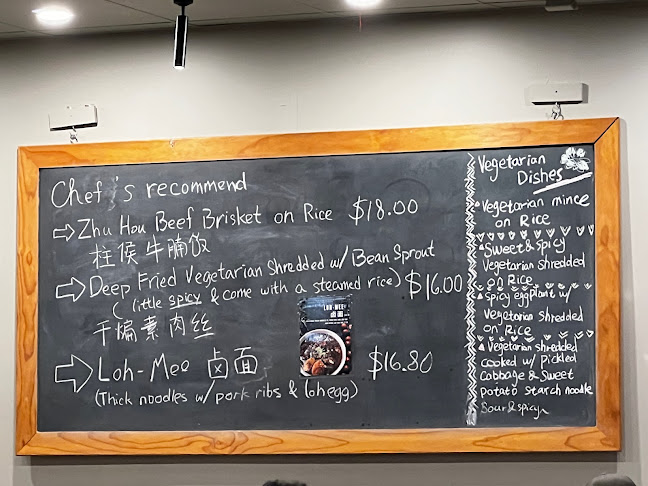 Chef's recommend
Zhu Hou Beef Brisket on Rice $18.00
柱侯牛腩饭
Deep Fried Vegetarian Shredded w/ Bean Sprout
(little spicy & come with a steamed rice) $16.00
干煸素肉丝
Loh-Mee 卤面 $16.80
(Thick noodles w/ pork ribs & lohegg)
LOH-MEE
卤面
Vegetarian
Dishes
Vegetarian mince
on Rice
Sweet & Spicy
Vegetarian shredded
on Rice
Spicy eggplant w/
Vegetarian Shredded
on Rice
Vegetarian Shredded
cooked w/ Pickled
Cabbage & Sweet
Potato Starch noodle
Sour & spicy